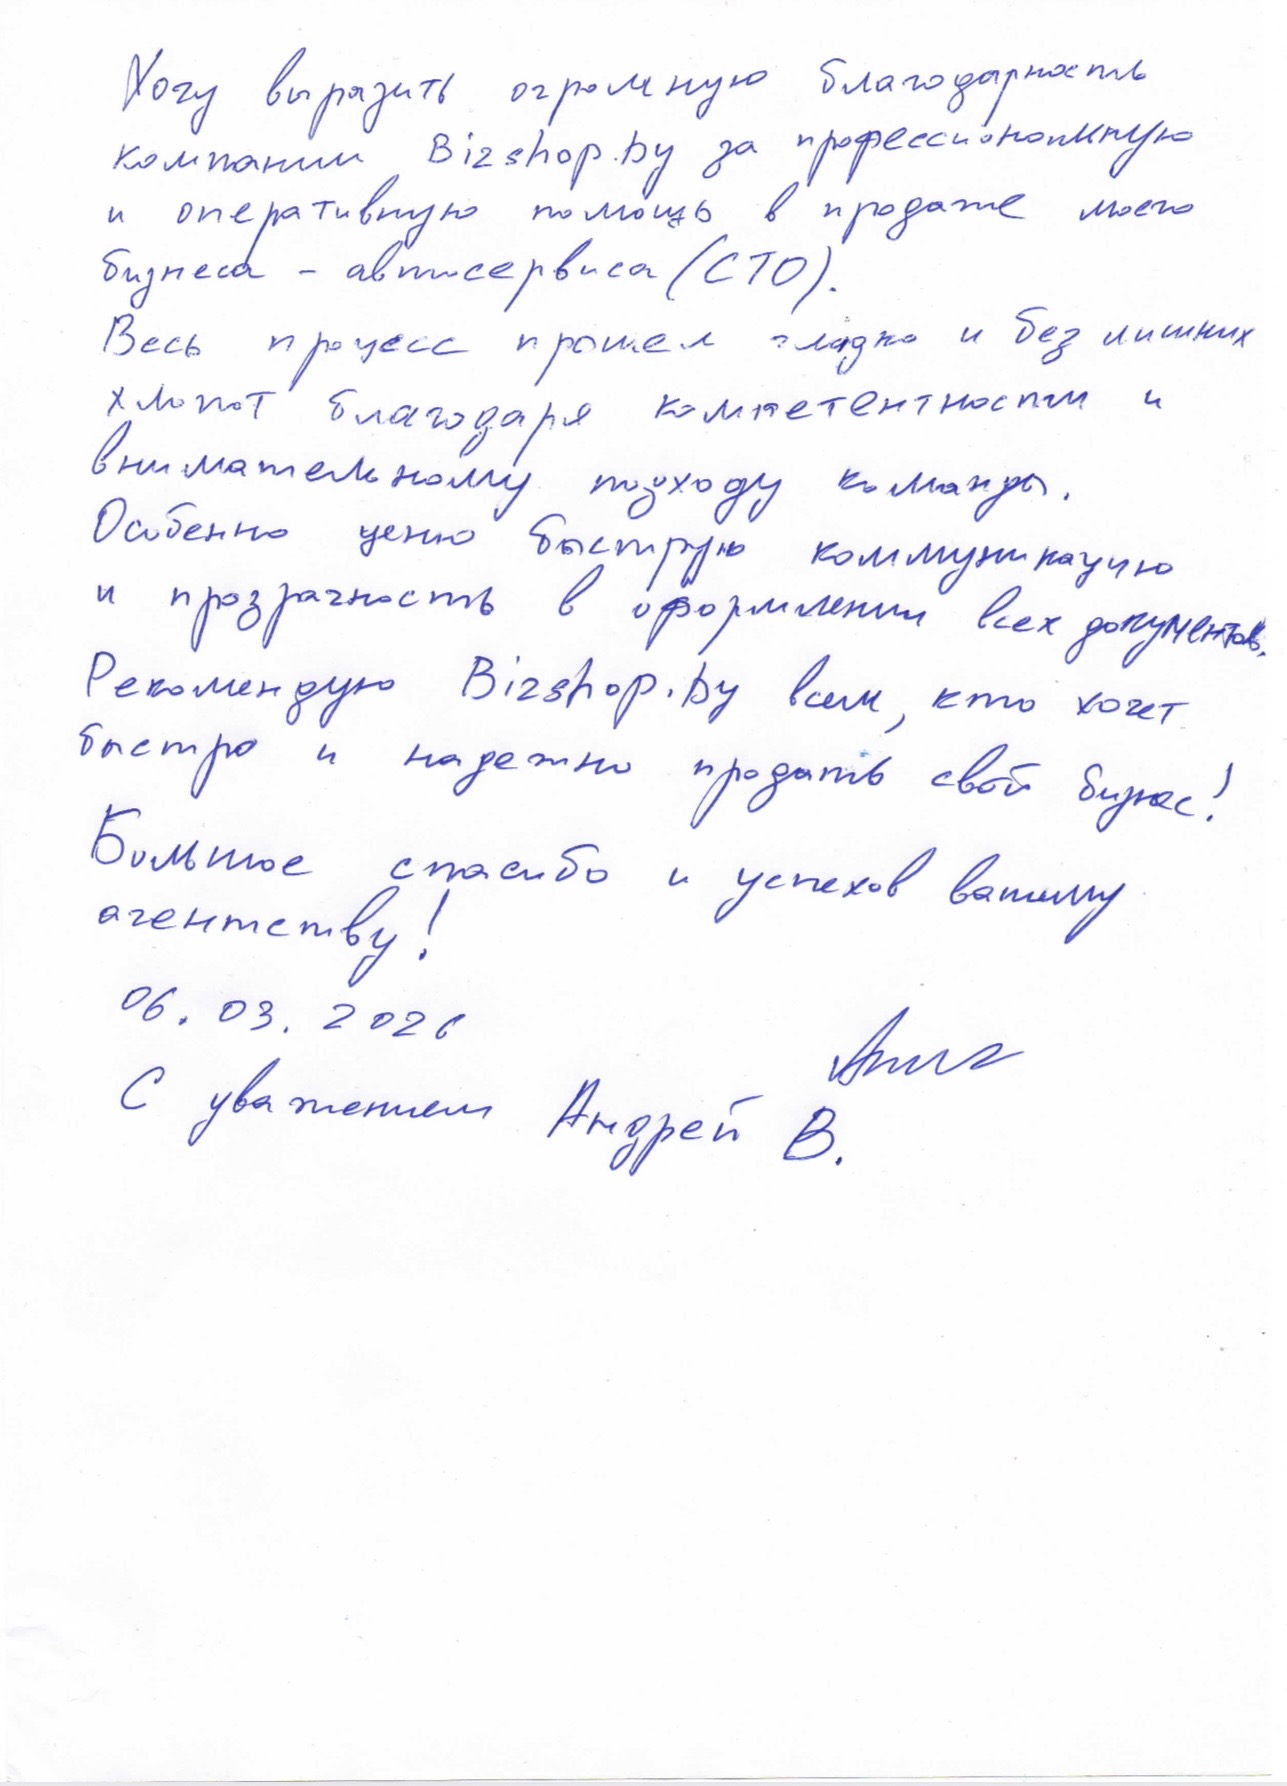 Хочу выразить огромную благодарность
компании Bizshop.by за профессиональную
и оперативную помощь в продаже моего
бизнеса - автосервиса (СТО).
Весь процесс прошел гладко и без лишних
хлопот благодаря компетентности и
внимательному подходу команды.
Особенно ценю быструю коммуникацию
и прозрачность в оформлении всех документов.
Рекомендую Bizshop.by всем, кто хочет
быстро и надежно продать свой бизнес!
Большое спасибо и успехов вашему
агентству!
06.03.2026
С уважением Андрей В.